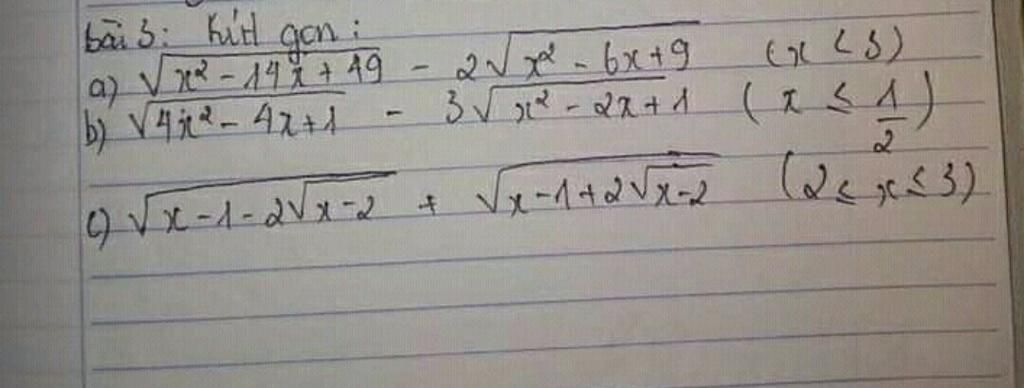 bài 3: Rút gọn:
a) √(x² - 14x + 49) - 2√(x² - 6x + 9) (x < 3)
b) √(4x² - 4x + 1) - 3√(x² - 2x + 1) (x ≤ 1/2)
c) √(x - 1 - 2√(x - 2)) + √(x - 1 + 2√(x - 2)) (2 ≤ x ≤ 3)